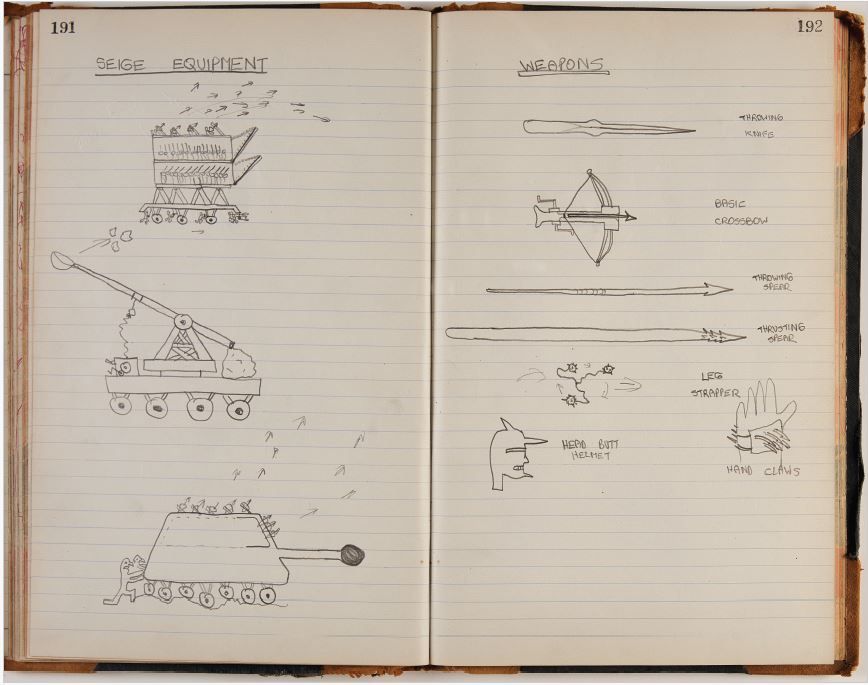 191
SEIGE EQUIPMENT
192
WEAPONS
THROWING
KNIFE
BASIC
CROSSBOW
THROWING
SPEAR
THRUSTING
SPEAR
LEG
STRAPPER
HEAD BUTT
HELMET
HAND CLAWS